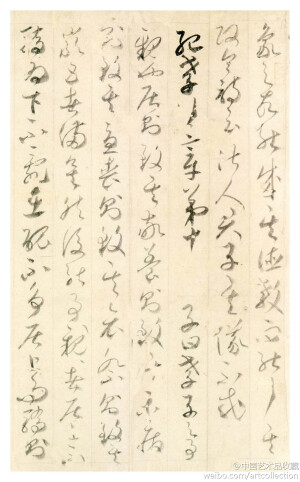 象之故能成其德教而行其
政令詩云淑人君子其儀不忒
紀孝行章第十 子曰孝子之事
親也居則致其敬養則致其樂病
則致其憂喪則致其哀祭則致其
嚴五者備矣然後能事親者居上不
驕為下不亂在醜不爭居上而驕則
@中国艺术品收藏
weibo.com/artcollection